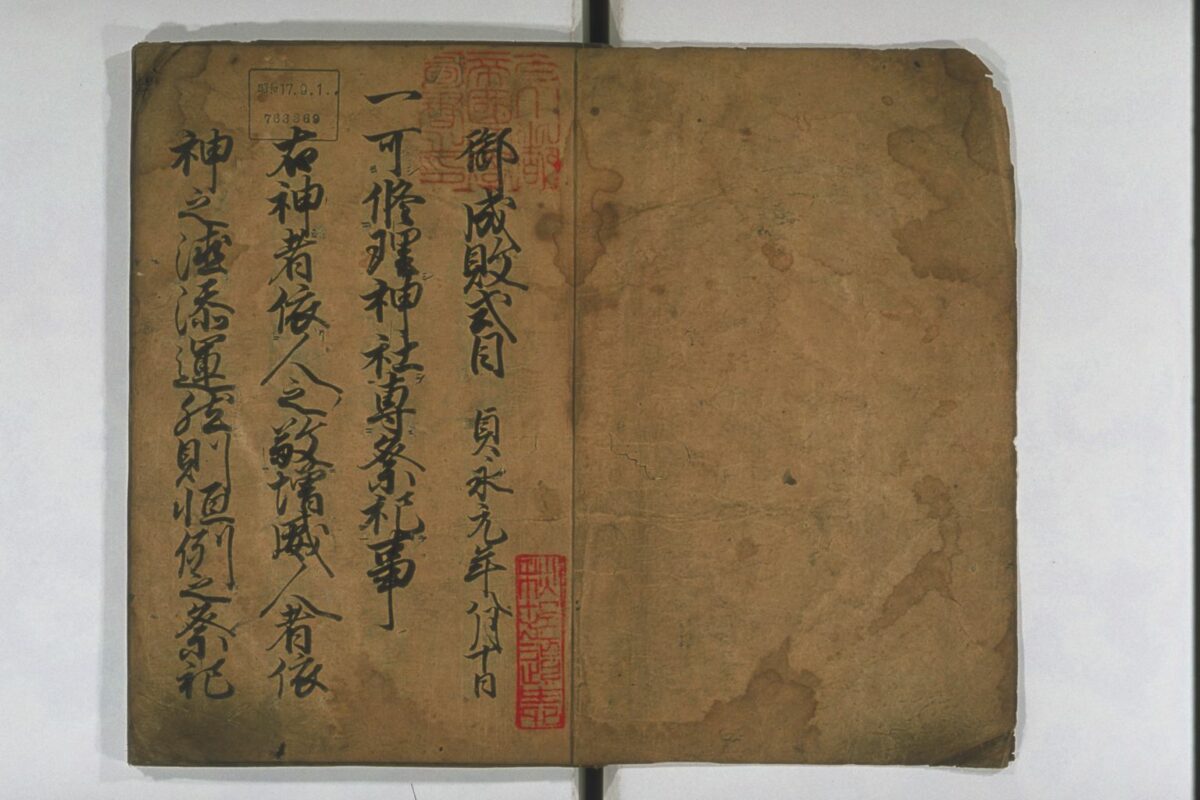 御成敗式目 貞永元年八月十日
一可修理神社専祭祀事
右神者依人之敬増威人者依
神之徳添運然則恒例之祭祀
昭和17.9.1
763369